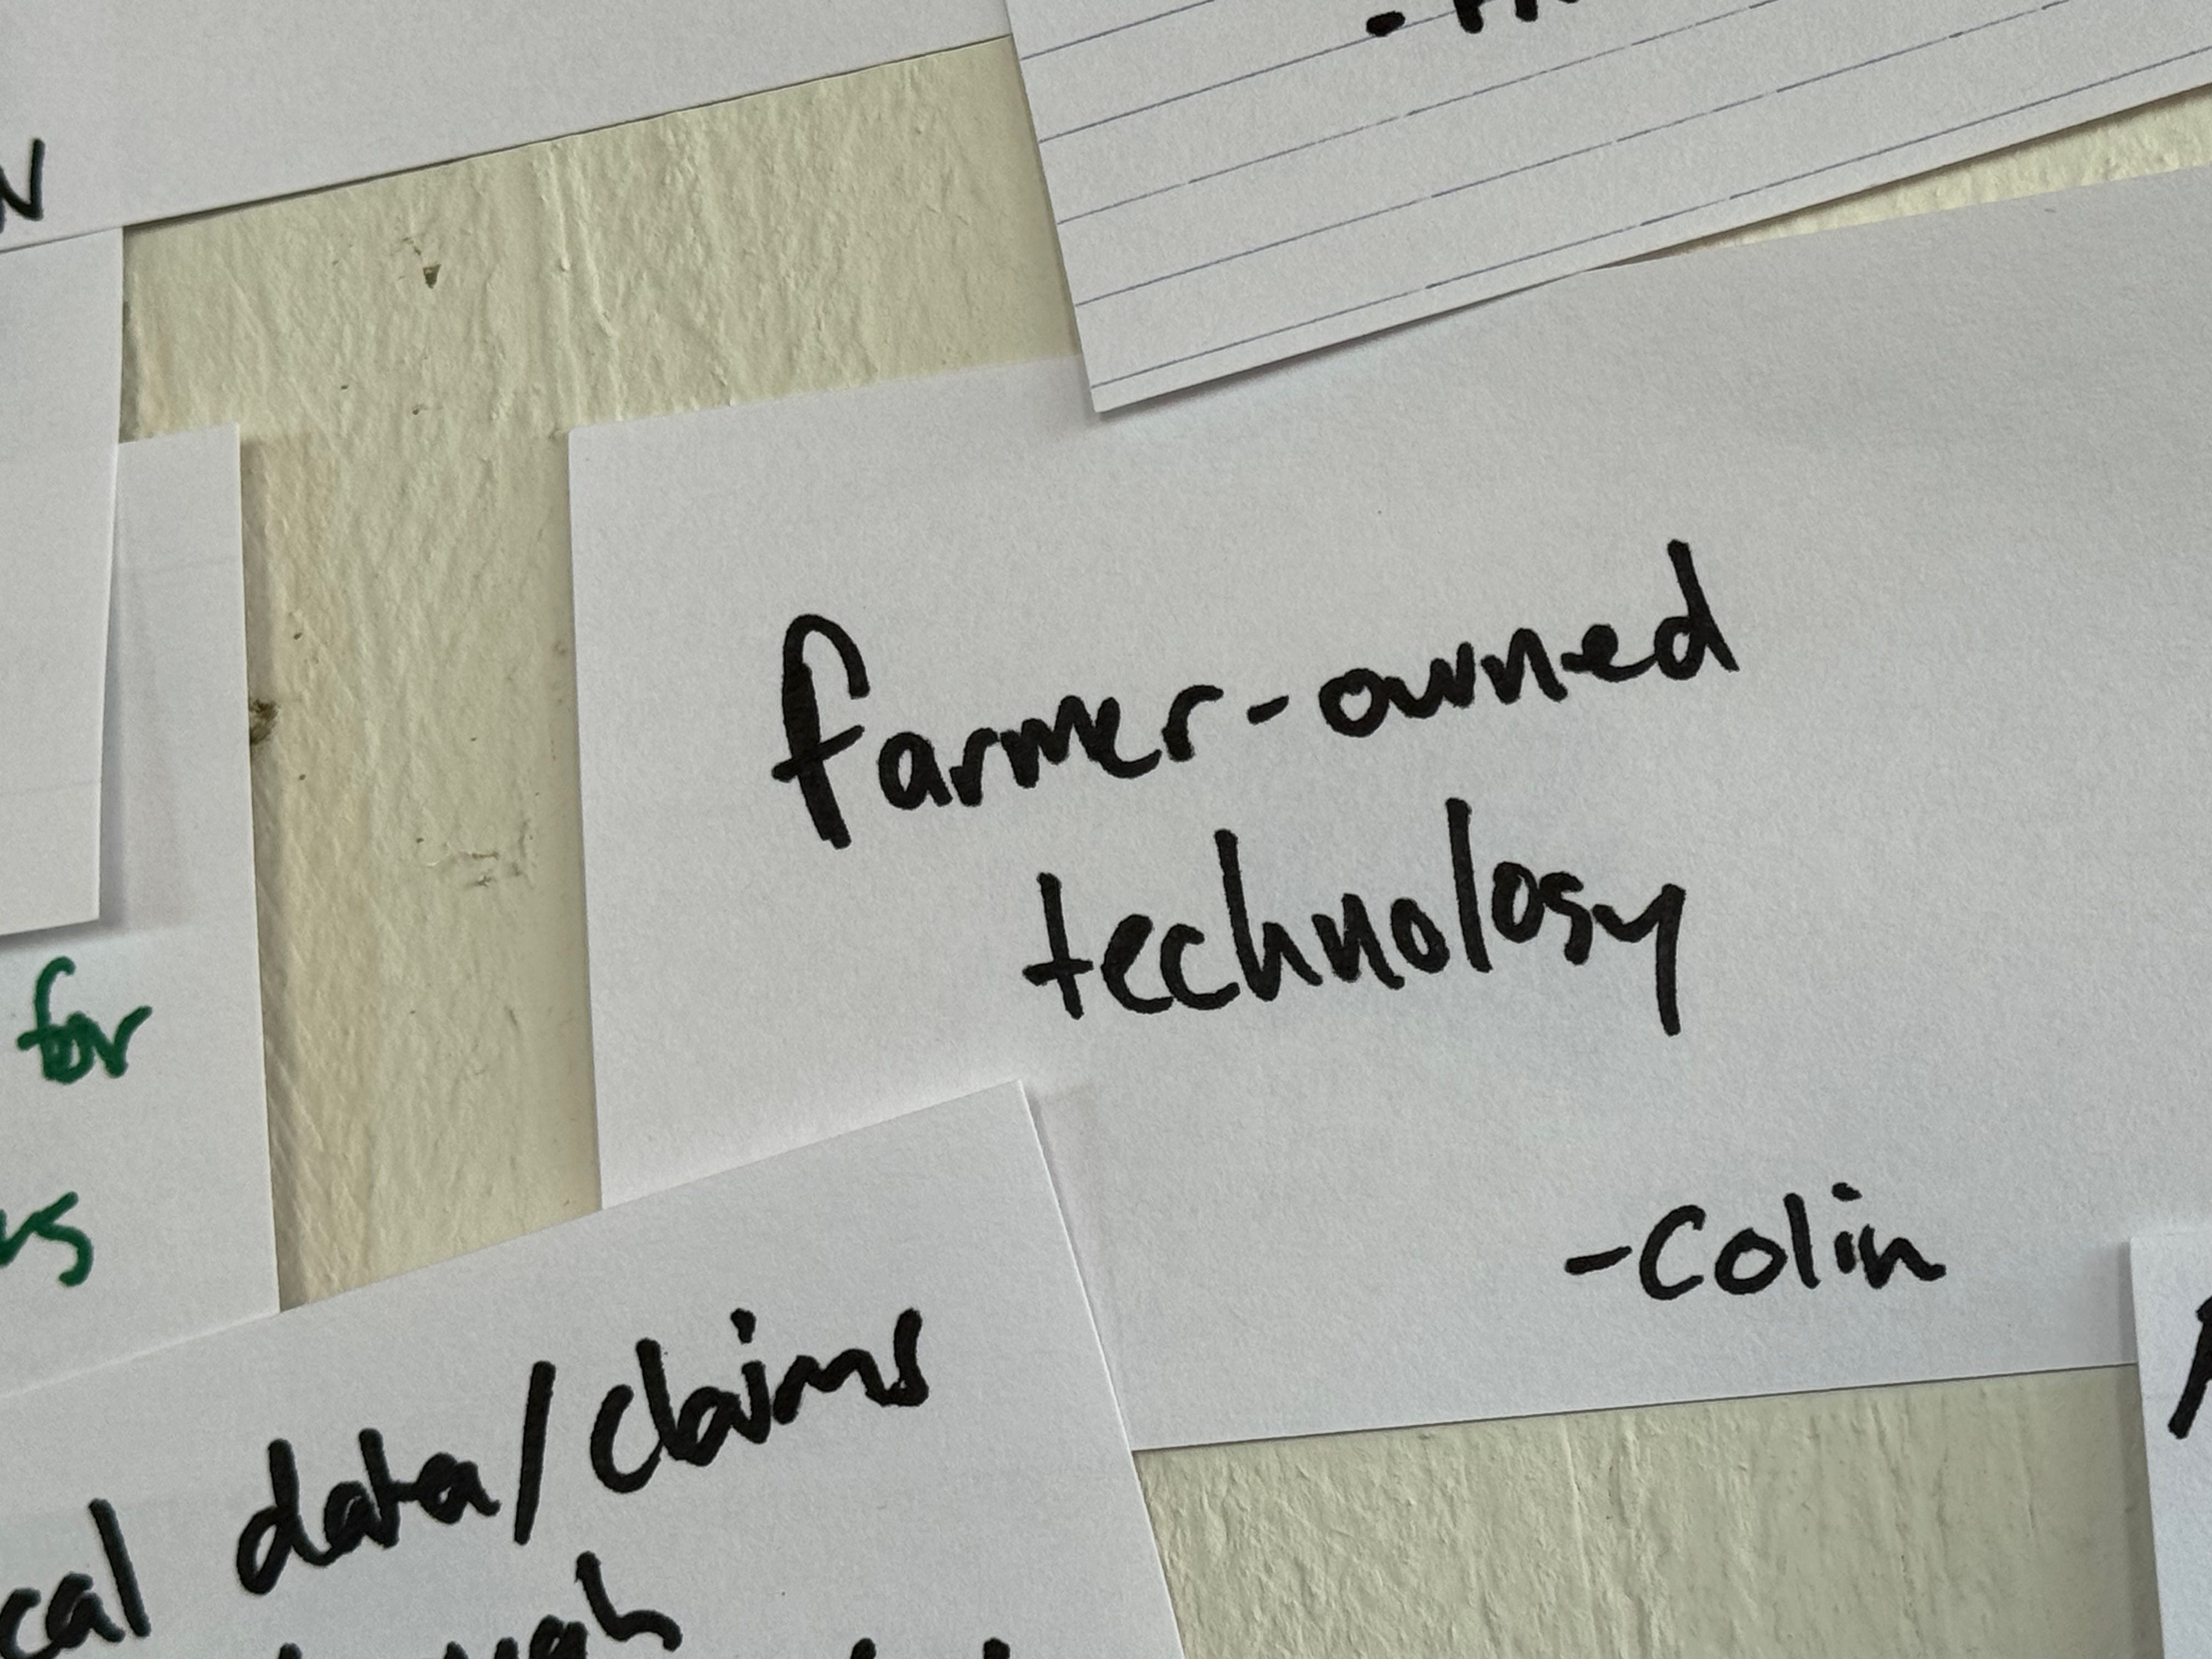 farmer-owned
technology
-Colin
for
data/claims